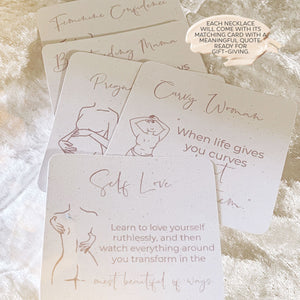 EACH NECKLACE
WILL COME WITH ITS
MATCHING CARD WITH A
MEANINGFUL QUOTE
READY FOR
GIFT-GIVING.
Feminine Confidence
Mama
Curvy Woman
"When life gives
you curves
Self Love
Learn to love yourself
ruthlessly, and then
watch everything around
you transform in the
most beautiful of ways.